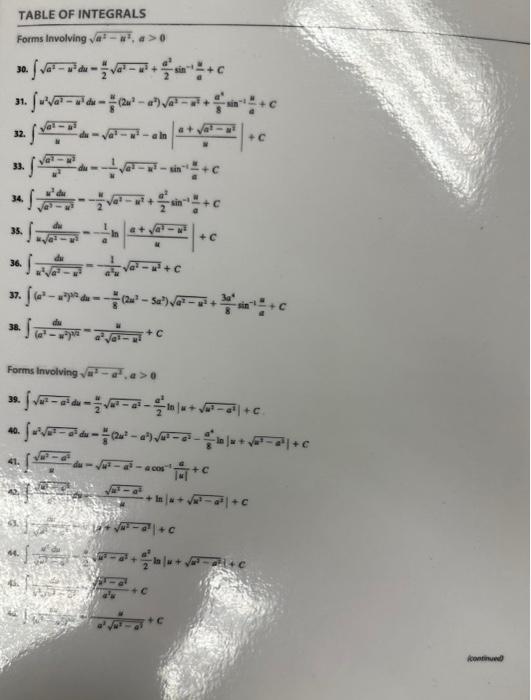 TABLE OF INTEGRALS
Forms Involving √(a² − u²), a > 0
30. ∫ √(a² − u²) du = u/2 √(a² − u²) + a²/2 sin⁻¹ u/a + C
31. ∫ u²√(a² − u²) du = u/8 (2u² − a²)√(a² − u²) + a⁴/8 sin⁻¹ u/a + C
32. ∫ √(a² − u²)/u du = √(a² − u²) − a ln |(a + √(a² − u²))/u| + C
33. ∫ √(a² − u²)/u² du = −1/u √(a² − u²) − sin⁻¹ u/a + C
34. ∫ u² du/√(a² − u²) = −u/2 √(a² − u²) + a²/2 sin⁻¹ u/a + C
35. ∫ du/(u√(a² − u²)) = −1/a ln |(a + √(a² − u²))/u| + C
36. ∫ du/(u²√(a² − u²)) = −1/(a²u) √(a² − u²) + C
37. ∫ (a² − u²)^(3/2) du = −u/8 (2u² − 5a²)√(a² − u²) + 3a⁴/8 sin⁻¹ u/a + C
38. ∫ du/(a² − u²)^(3/2) = u/(a²√(a² − u²)) + C
Forms Involving √(u² − a²), a > 0
39. ∫ √(u² − a²) du = u/2 √(u² − a²) − a²/2 ln |u + √(u² − a²)| + C
40. ∫ u²√(u² − a²) du = u/8 (2u² − a²)√(u² − a²) − a⁴/8 ln |u + √(u² − a²)| + C
41. ∫ √(u² − a²)/u du = √(u² − a²) − a cos⁻¹ a/|u| + C
√(u² − a²) + ln |u + √(u² − a²)| + C
+ √(u² − a²)| + C
44. ∫ √(u² − a²) + a²/2 ln |u + √(u² − a²)| + C
√(u² − a²)/(a²u) + C
u/(a²√(u² − a²)) + C
(continued)